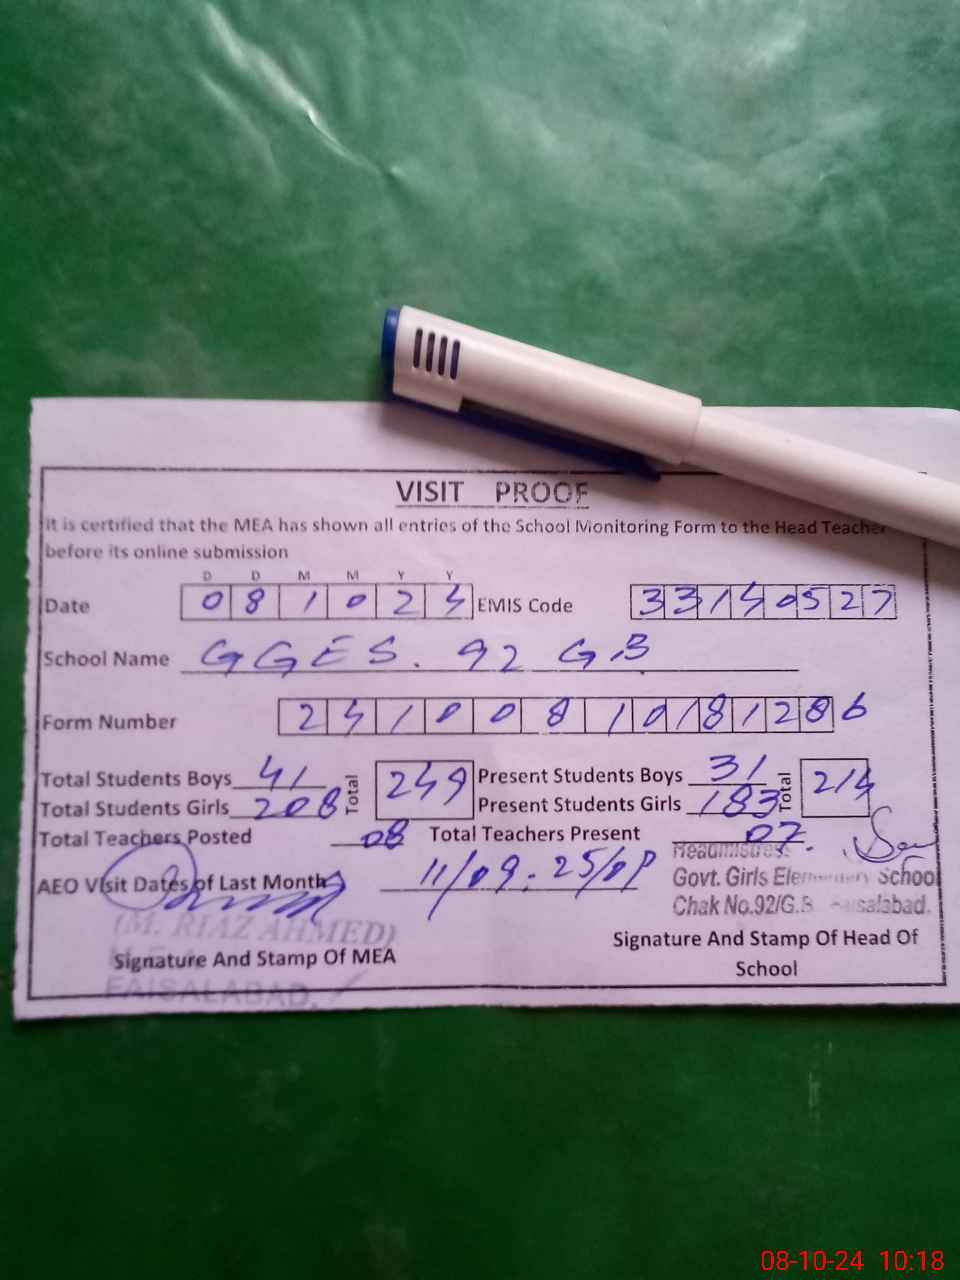 VISIT PROOF
It is certified that the MEA has shown all entries of the School Monitoring Form to the Head Teacher
before its online submission
D D M M Y Y
Date 081024 EMIS Code 33140527
School Name GGES. 92 GB
Form Number 24100810181286
Total Students Boys 41 Total 249 Present Students Boys 31 Total 214
Total Students Girls 208 Present Students Girls 183
Total Teachers Posted 08 Total Teachers Present 07
Headmistress
AEO Visit Dates of Last Month 11/09. 25/09 Govt. Girls Elementary School
Chak No.92/G.B Faisalabad.
(M. RIAZ AHMED)
Signature And Stamp Of MEA Signature And Stamp Of Head Of
School
FAISALABAD.
08-10-24 10:18